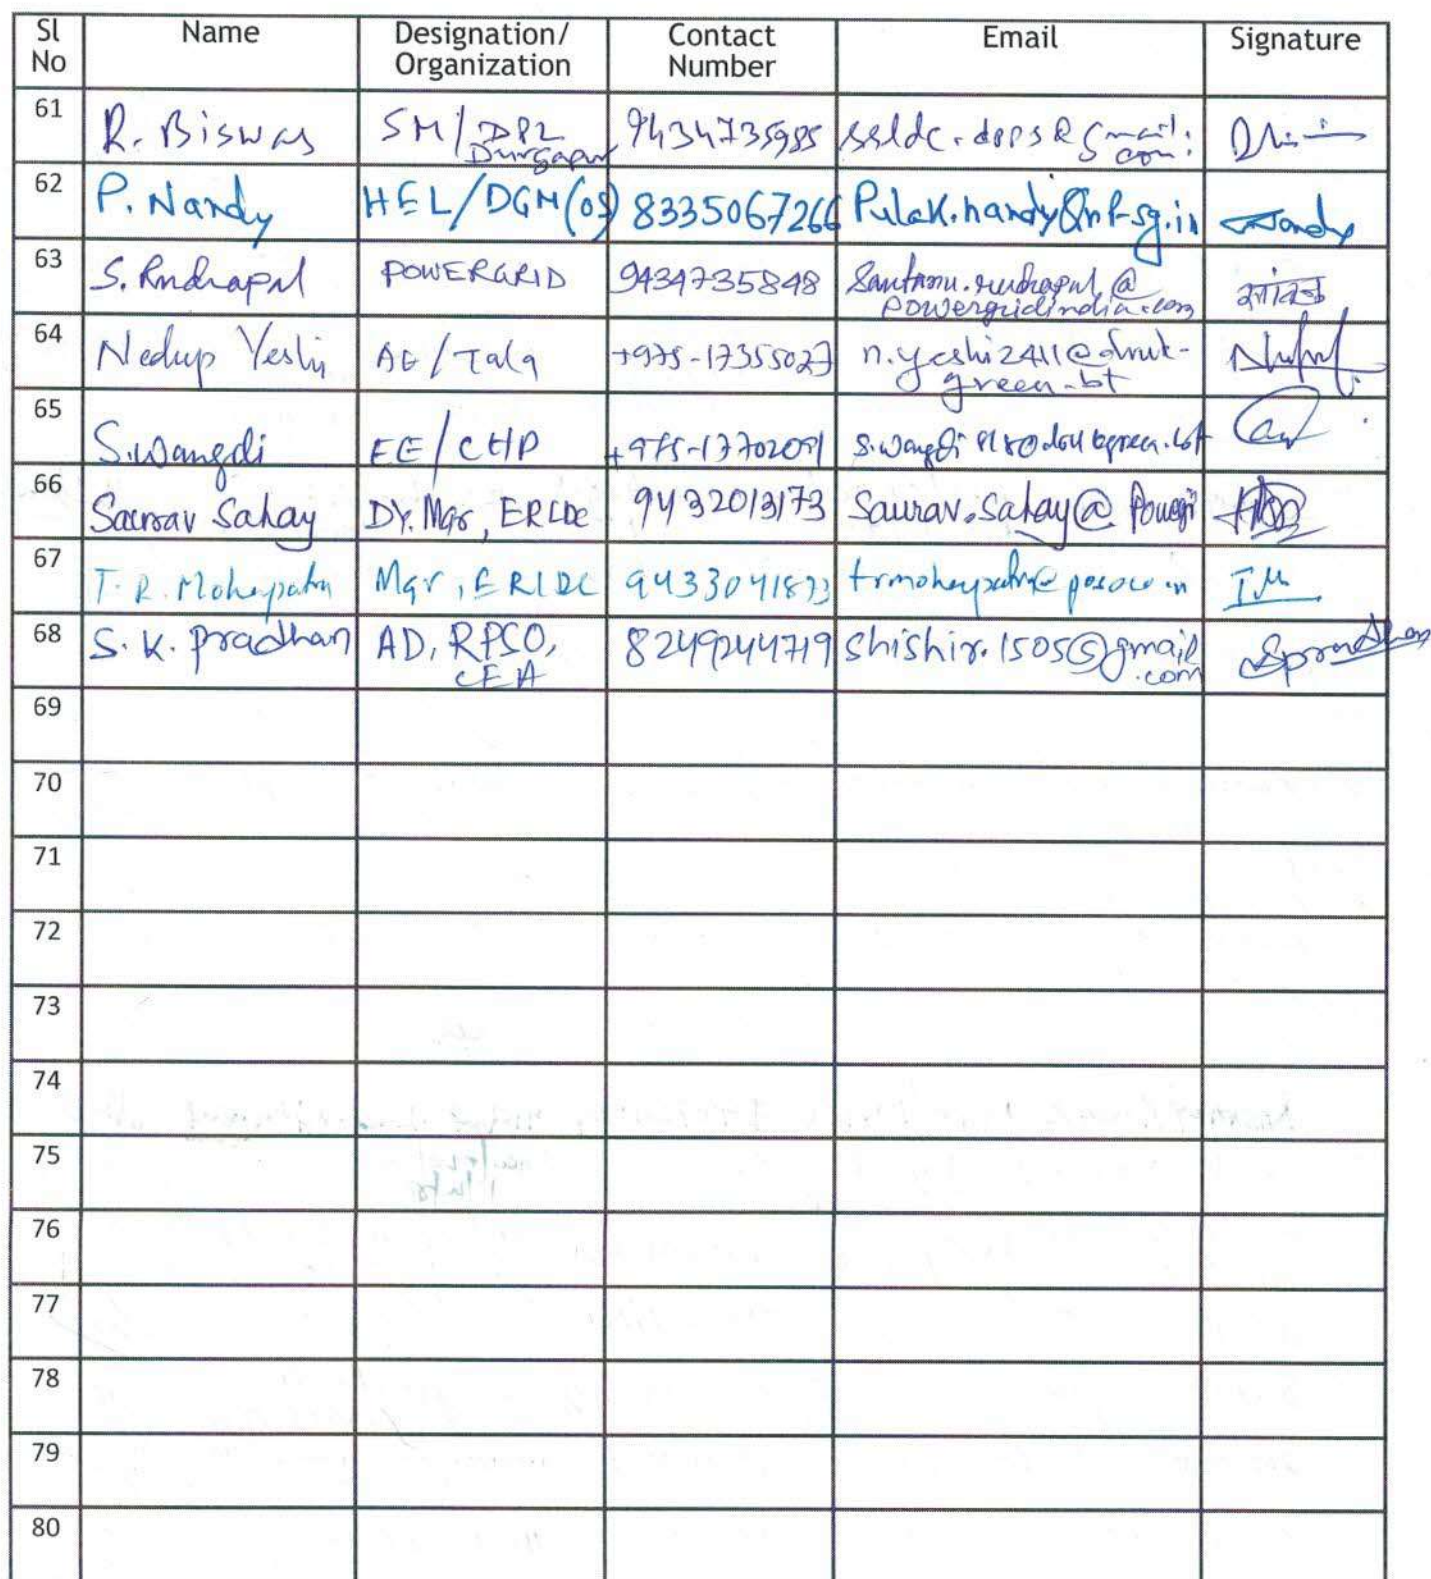 Sl No Name Designation/ Organization Contact Number Email Signature
61 R. Biswas SM/DPL Durgapur 9434735985
62 P. Nandy HEL/DGM(OS) 8335067266 Pulak.nandy@rp-sg.in Nandy
63 S. Rudrapal POWERGRID 9434735848 Santanu.rudrapal@
powergridindia.com
64 Nedup Yeshi AE/Tala +975-17355027 n.yeshi2411@druk-
green.bt
65 S.Wangdi EE/CHP +975-17702091
66 Saurav Sahay Dy. Mgr, ERLDC 9432013173 Saurav.Sahay@
67 T.R. Mohapatra Mgr, ERLDC 9433041873 trmohapatra@posoco.in
68 S. K. Pradhan AD, RPSO, CEA 8249244719 shishir.1505@gmail
.com Spradhan
69
70
71
72
73
74
75
76
77
78
79
80